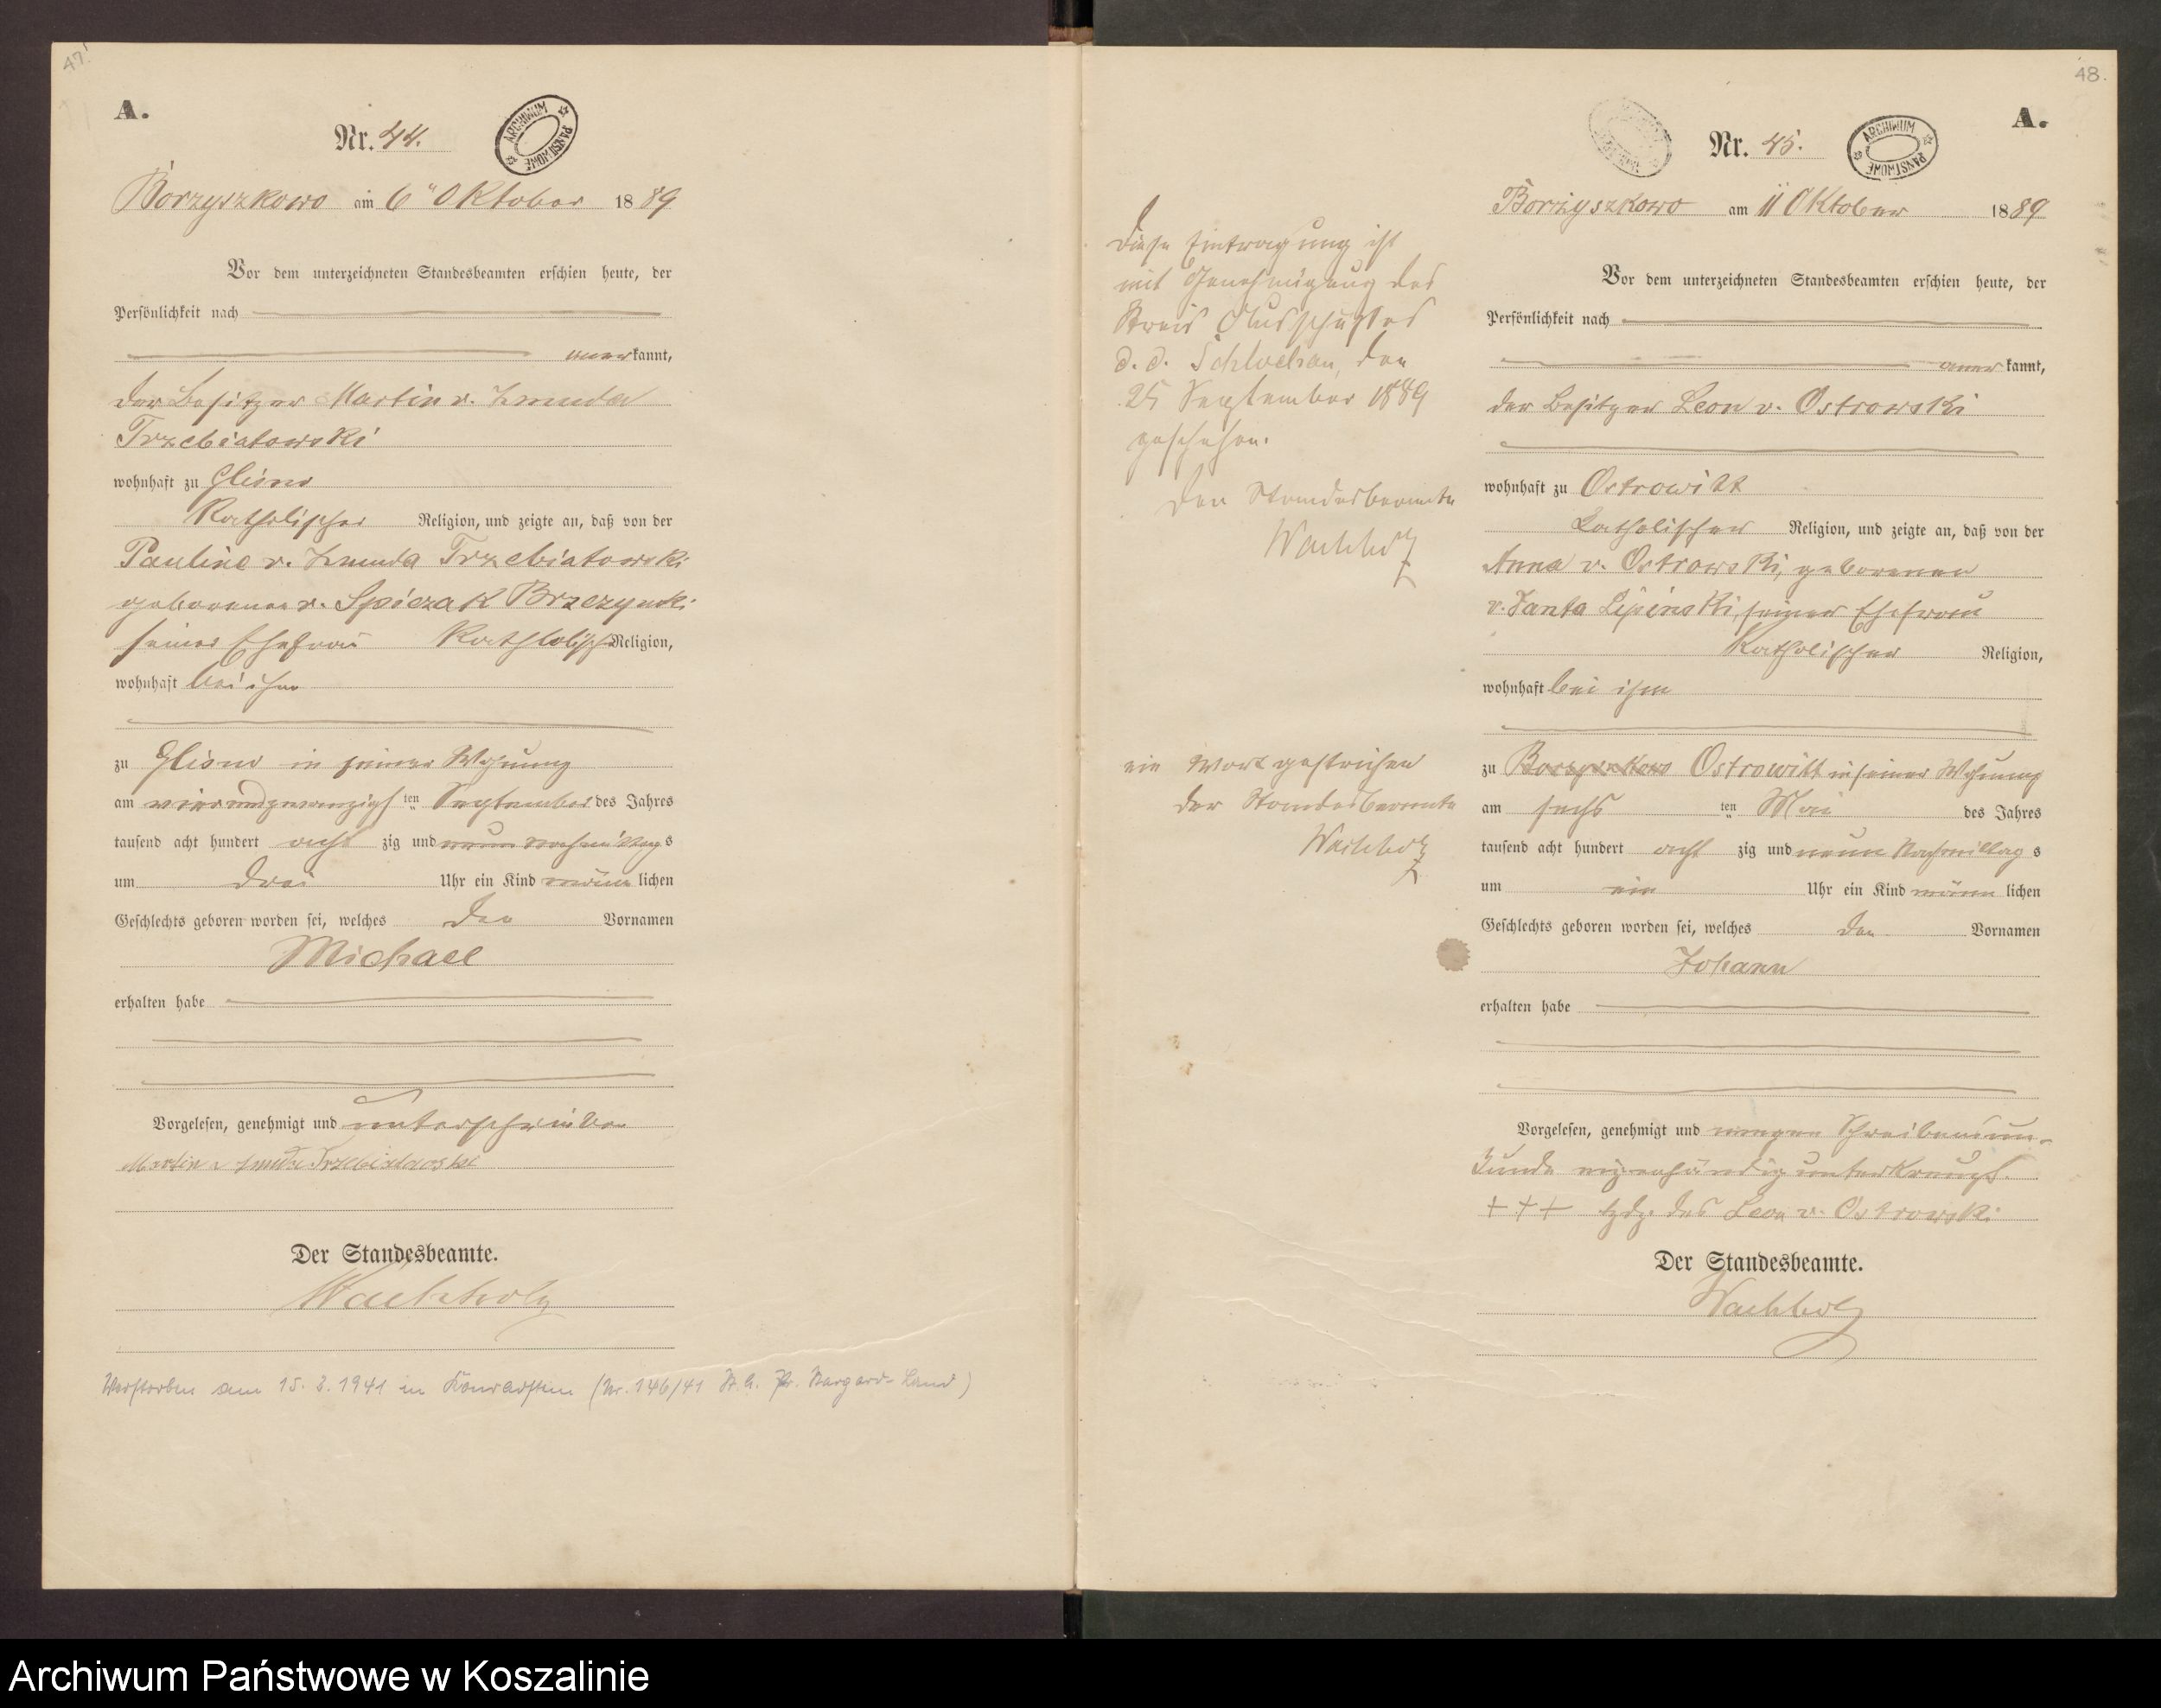 47.
A.
Nr. 44.
ARCHIWUM PAŃSTWOWE
Borzyszkowo am 6 Oktober 1889
Vor dem unterzeichneten Standesbeamten erschien heute, der
Persönlichkeit nach
anerkannt,
der Besitzer Martin v. Zmuda
Trzebiatowski
wohnhaft zu Glisno
katholischer Religion, und zeigte an, daß von der
Pauline v. Zmuda Trzebiatowski
geborenen v. Spiczak Brzezynski
seiner Ehefrau katholischer Religion,
wohnhaft bei ihm
zu Glisno in seiner Wohnung
am vierundzwanzigsten September des Jahres
tausend acht hundert achtzig und neun Nachmittags
um drei Uhr ein Kind männlichen
Geschlechts geboren worden sei, welches den Vornamen
Michael
erhalten habe
Vorgelesen, genehmigt und unterschrieben
Martin v Zmuda Trzebiatowski
Der Standesbeamte.
Wachholz
Verstorben am 15. 2. 1941 in Konradstein (Nr. 146/41 St. A. Pr. Stargard-Land)
48.
A.
Nr. 45.
ARCHIWUM PAŃSTWOWE
Borzyszkowo am 11 Oktober 1889
Diese Eintragung ist
mit Genehmigung des
Kreis Ausschusses
d. d. Schlochau, den
25 September 1889
geschehen.
Der Standesbeamte
Wachholz
Vor dem unterzeichneten Standesbeamten erschien heute, der
Persönlichkeit nach
anerkannt,
der Besitzer Leon v. Ostrowski
wohnhaft zu Ostrowitt
katholischer Religion, und zeigte an, daß von der
Anna v. Ostrowski, geborenen
v. Janta Lipinski, seiner Ehefrau
katholischer Religion,
wohnhaft bei ihm
ein Wort gestrichen
Der Standesbeamte
Wachholz
zu Borzyszkowo Ostrowitt in seiner Wohnung
am sechsten Mai des Jahres
tausend acht hundert achtzig und neun Nachmittags
um ein Uhr ein Kind männlichen
Geschlechts geboren worden sei, welches den Vornamen
Johann
erhalten habe
Vorgelesen, genehmigt und wegen Schreibensun-
kunde eigenhändig unterkreuzt.
+++ hdz. des Leon v. Ostrowski
Der Standesbeamte.
Wachholz
Archiwum Państwowe w Koszalinie